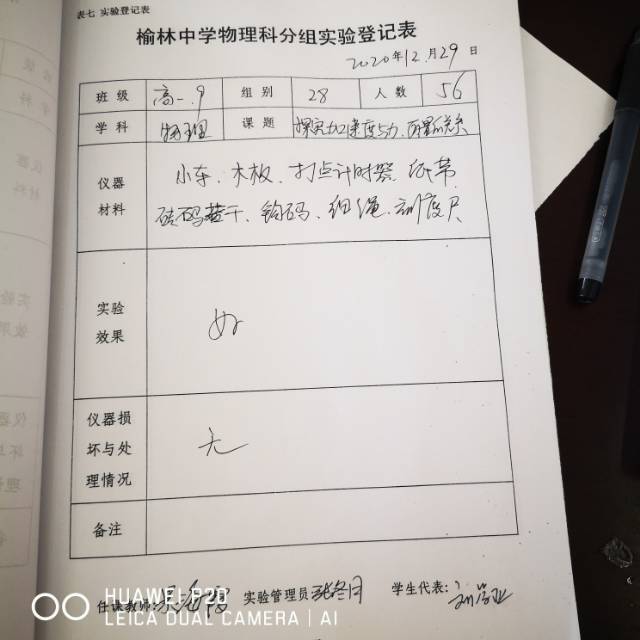 表七 实验登记表
榆林中学物理科分组实验登记表
2020年12月29日
班级 高一.9 组别 28 人数 56
学科 物理 课题 探究加速度与力、质量的关系
仪器材料 小车、木板、打点计时器、纸带
砝码若干、钩码、细绳、刻度尺
实验效果 好
仪器损坏与处理情况 无
备注
任课教师: 实验管理员 张冬月 学生代表:
HUAWEI P20
LEICA DUAL CAMERA | AI